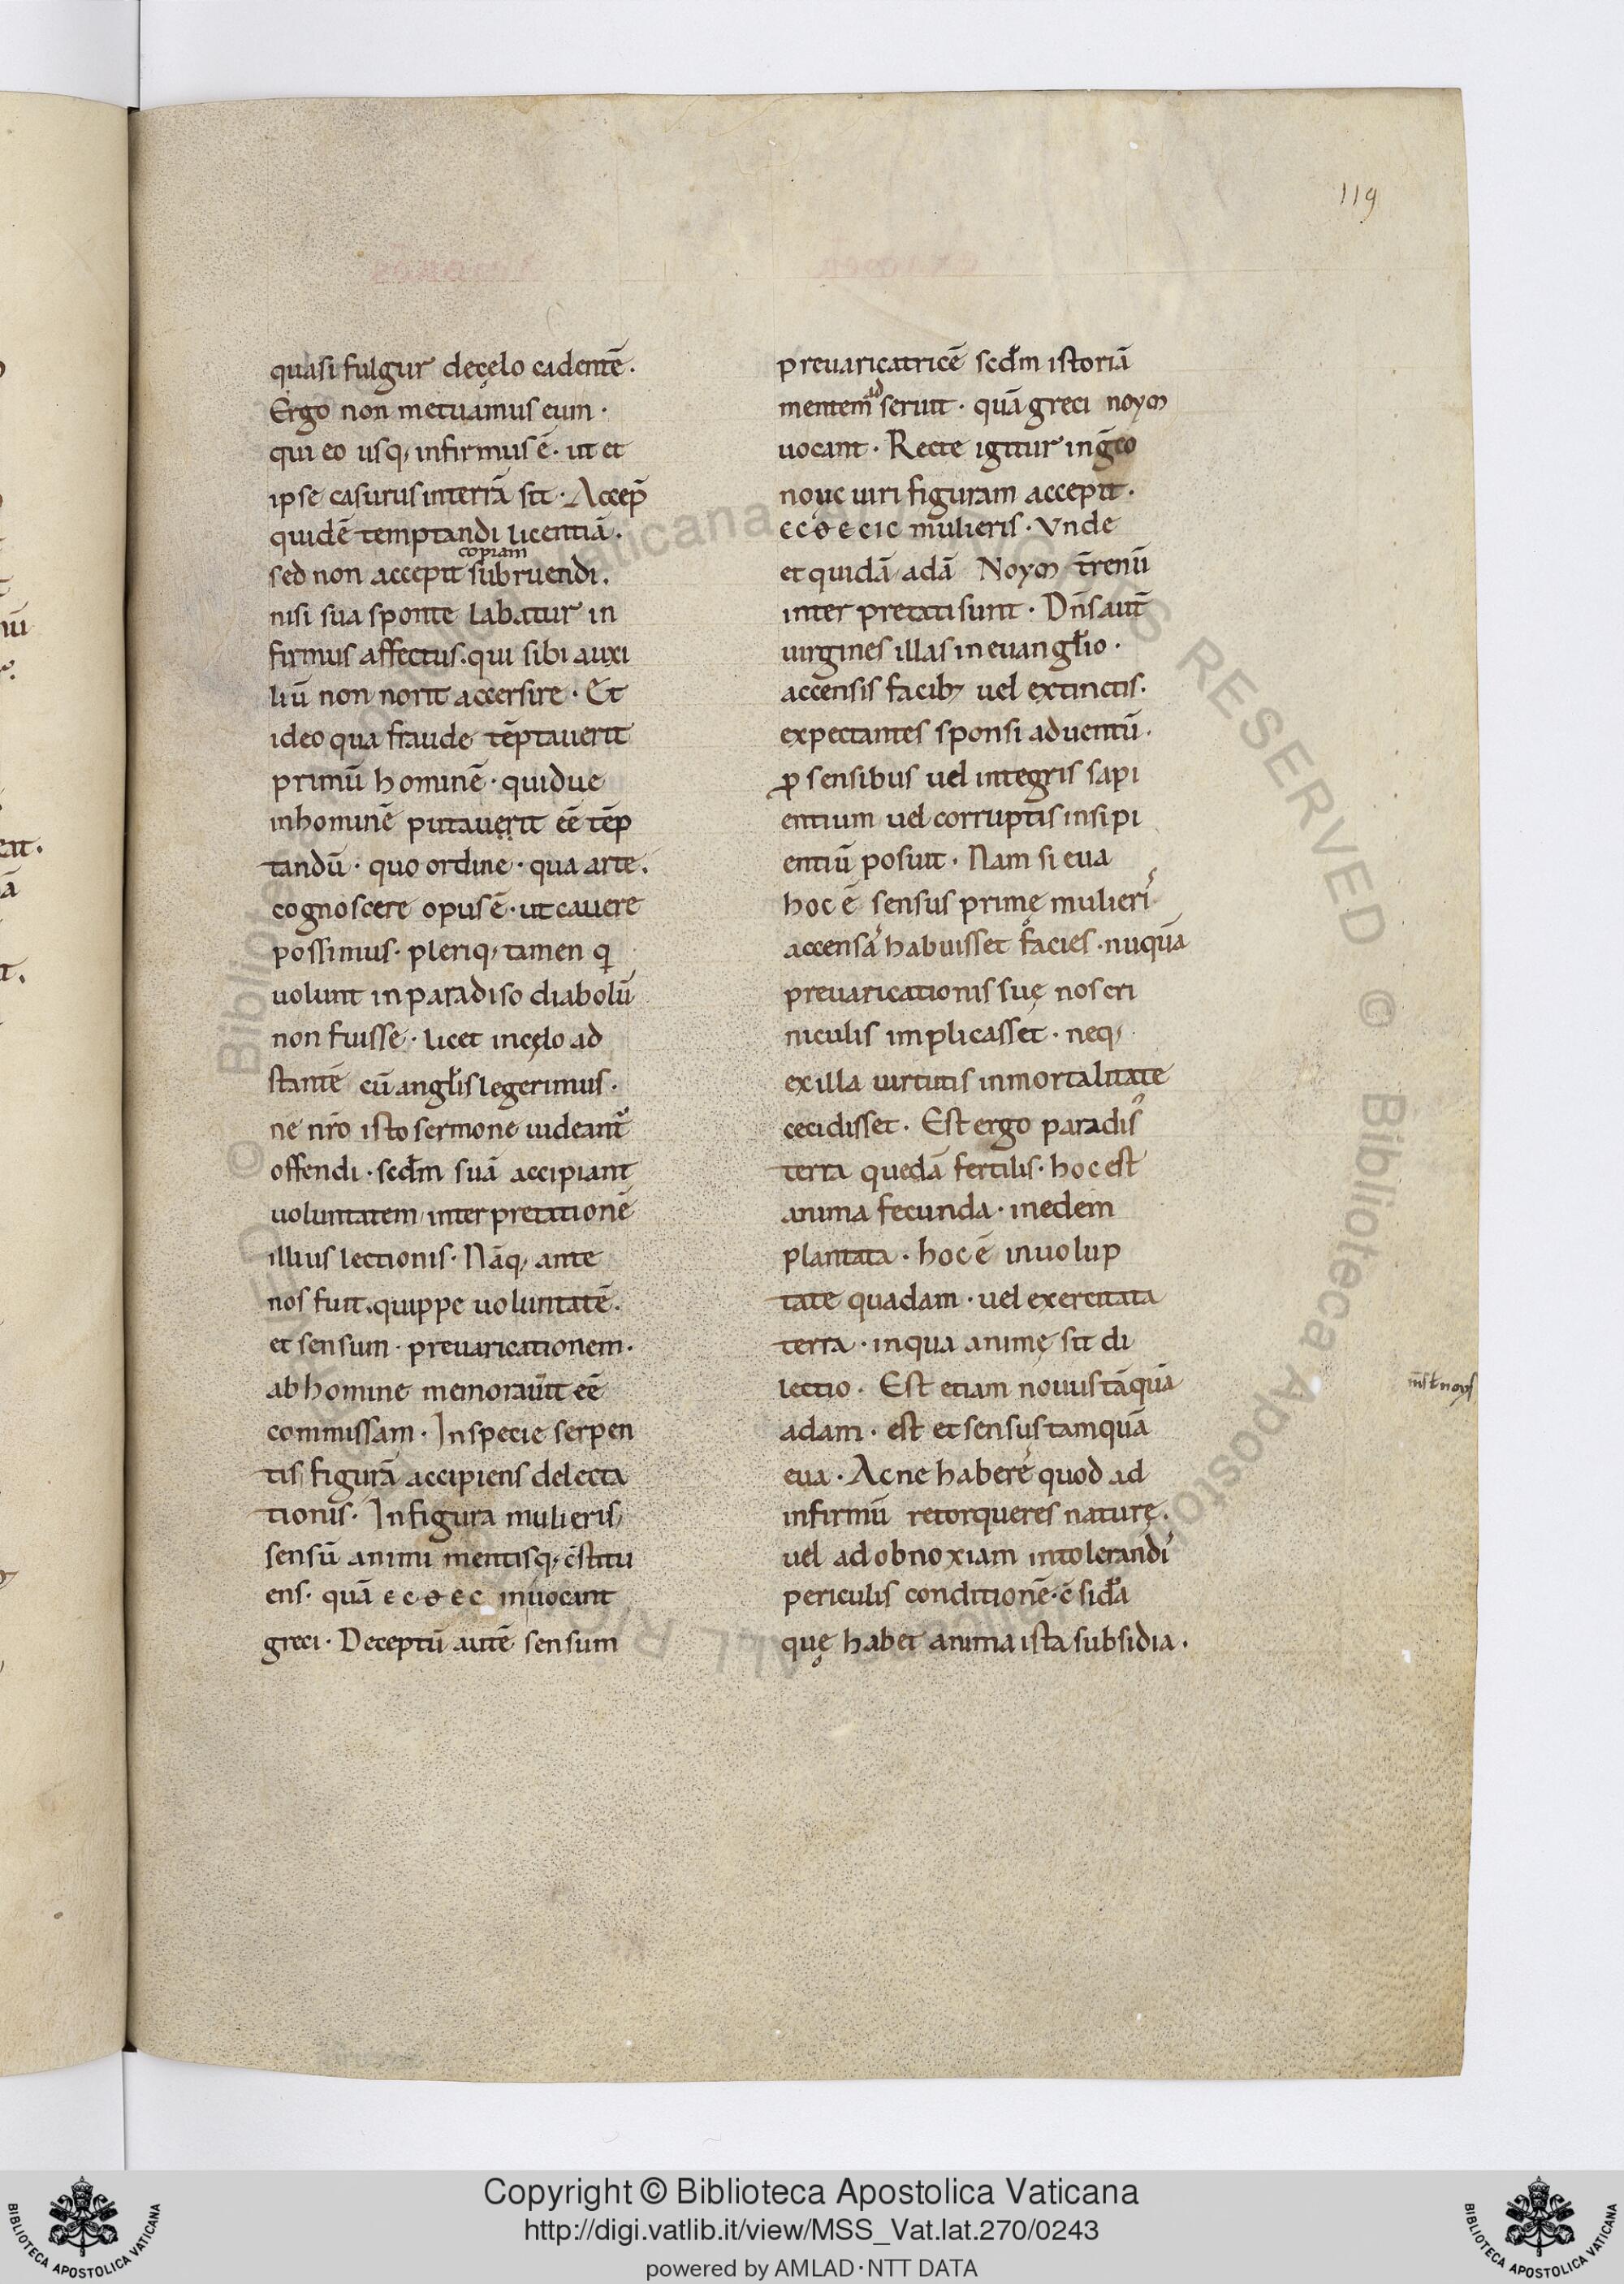 119
quasi fulgur decelo cadentē.
Ergo non metuamus eum ·
qui eo usq; infirmus ē · ut et
ipse casurus interrā sit · Accep̄
quidē temptandi licentiā.
copiam
sed non accepit subruendi.
nisi sua sponte labatur in
firmus affectus. qui sibi auxi
liū non norit accersire · Et
ideo qua fraude tēptauerit
primū hominē · quidue
inhominē putauerit eē tēp
tandū · quo ordine · qua arte.
cognoscere opus ē · ut cauere
possimus · pleriq; tamen q
uolunt in paradiso diabolū
non fuisse · licet incęlo ad
stantē cū angl̄is legerimus ·
ne nr̄o isto sermone uideant᷑
offendi · scd̄m suā accipiant
uoluntatem interpretationē
illius lectionis · Nāq; ante
nos fuit. quippe uoluntatē.
et sensum · preuaricationem.
ab homine memorauit eē
commissam · Inspecie serpen
tis figurā accipiens delecta
tionis · Infigura mulieris
sensū animi mentisq; c̄stitu
ens · quā ecɵec inuocant
greci · Deceptū autē sensum
preuaricatricē scd̄m istoriā
ad
mentem seruit · quā greci noyn
uocant · Recte igitur in gręco
nouc uiri figuram accepit ·
ecɵecic mulieris · Vnde
et quidā adā Noyn t̄renū
interpretati sunt · Dn̄s aut̄
uirgines illas in euangl̄io ·
accensis facib; uel extinctis ·
expectantes sponsi aduentū ·
ꝓ sensibus uel integris sapi
entium uel corruptis insipi
entiū posuit · Nam si eua
hoc ē sensus primę mulieris
accensas habuisset facies · nuquā
preuaricationis suę nos cri
niculis implicasset · neq;
exilla uirtutis inmortalitate
cecidisset · Est ergo paradis᷑
terra quedā fertilis · hoc est
anima fecunda · inedem
plantata · hoc ē inuolup
tate quadam · uel exercitata
terra · inqua animę sit di
lectio · Est etiam nouus tāquā
adam · est et sensus tamquā
eua · Ac ne haberes quod ad
infirmū retorqueres naturę.
uel ad obnoxiam intolerandis
periculis conditionē · c̄sidȧ
quę habet anima ista subsidia.
Copyright © Biblioteca Apostolica Vaticana
http://digi.vatlib.it/view/MSS_Vat.lat.270/0243
powered by AMLAD·NTT DATA
BIBLIOTECA APOSTOLICA VATICANA
BIBLIOTECA APOSTOLICA VATICANA